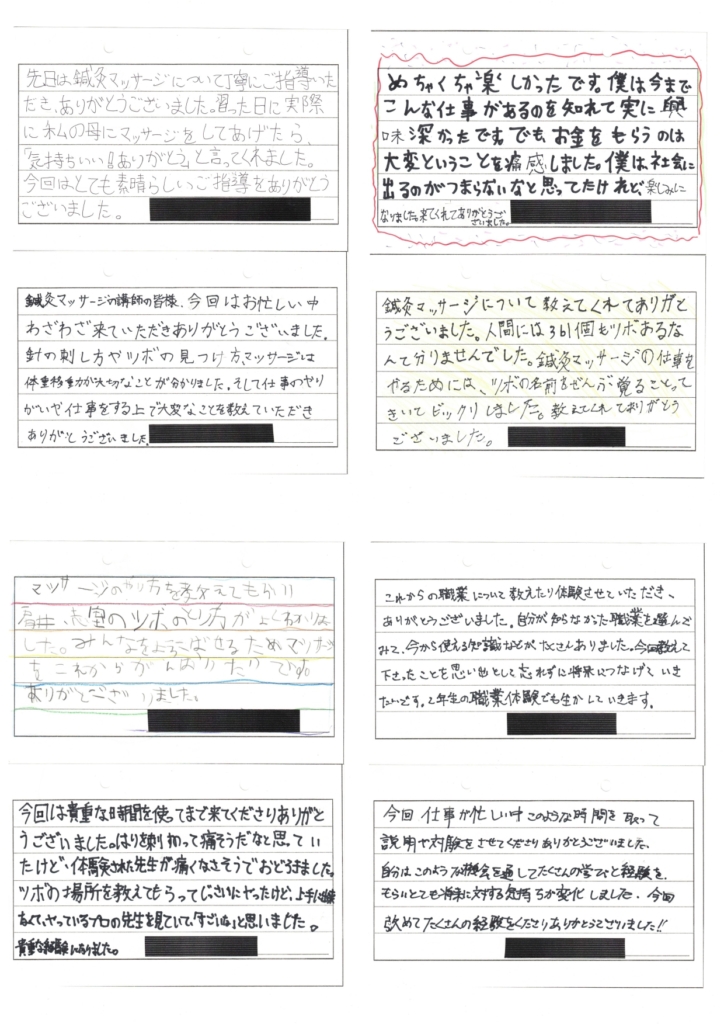 先日は鍼灸マッサージについて丁寧にご指導いた
だき、ありがとうございました。習った日に実際
に私の母にマッサージをしてあげたら、
「気持ちいい!ありがとう」と言ってくれました。
今回はとても素晴らしいご指導をありがとう
ございました。
めちゃくちゃ楽しかったです。僕は今まで
こんな仕事があるのを知れて実に興
味深かったです。でもお金をもらうのは
大変ということを痛感しました。僕は社会に
出るのがつまらないなと思ってたけれど、楽しみに
なりました。来てくれてありがとうござ
いました。
鍼灸マッサージの講師の皆様、今回はお忙しい中
わざわざ来ていただきありがとうございました。
針の刺し方やツボの見つけ方、マッサージは
体重移動が大切なことが分かりました。そして仕事のやり
がいや仕事をする上で大変なことを教えていただき
ありがとうございました。
鍼灸マッサージについて教えてくれてありがと
うございました。人間には361個もツボあるな
んて分りませんでした。鍼灸マッサージの仕事を
やるためには、ツボの名前をぜんぶ覚ることって
きいてビックリしました。教えてくれてありがとう
ございました。
マッサージのやり方を教えてもらい
肩井、志室のツボのとり方がよくわかりま
した。みんなをよろこばせるためマッサージ
をこれからがんばりたいです。
ありがとございました。
これからの職業について教えたり体験させていただき、
ありがとうございました。自分が知らなかった職業を選んで
みて、今から使える知識などがたくさんありました。今回教えて
下さったことを思い出として忘れずに将来につなげていき
たいです。2年生の職業体験でも生かしていきます。
今回は貴重な時間を使ってまで来てくださりありがと
うございました。はりを刺すって痛そうだなと思ってい
たけど、体験された先生が痛くなさそうでおどろきました。
ツボの場所を教えてもらってじっさいにヤったけど、上手に出来
なくて、ヤっているプロの先生を見ていて、「すごいな」と思いました。
貴重な経験になりました。
今回 仕事が忙しい中このような時間を取って
説明や体験をさせてくださりありがとうございました。
自分はこのような機会を通してたくさんの学びと経験を、
もらいとても将来に対する気持ちが変化しました。今回
改めてたくさんの経験をくださりありがとうございました!!